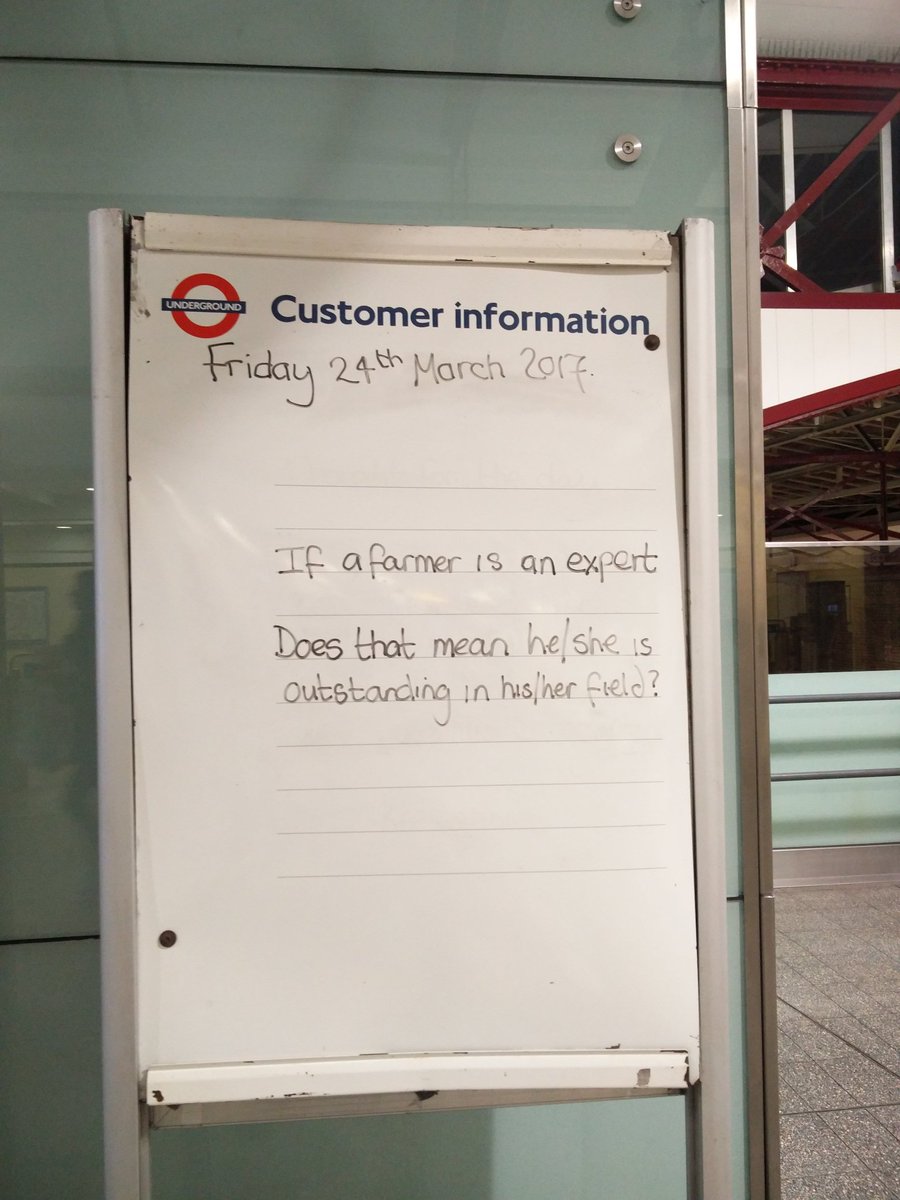 UNDERGROUND
Customer information
Friday 24th March 2017.
If a farmer is an expert
Does that mean he/she is
outstanding in his/her field?